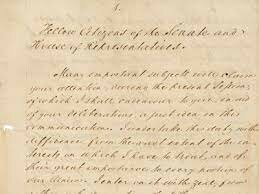 1.
Fellow Citizens of the Senate and
House of Representatives.
Many important subjects will claim
your attention during the present Session,
of which I shall endeavour to give, in aid
of your deliberations, a just idea in this
communication. I undertake this duty with
diffidence from the vast extent of the in-
terests on which I have to treat, and of
their great importance to every portion of
our Union. I enter on it with zeal from